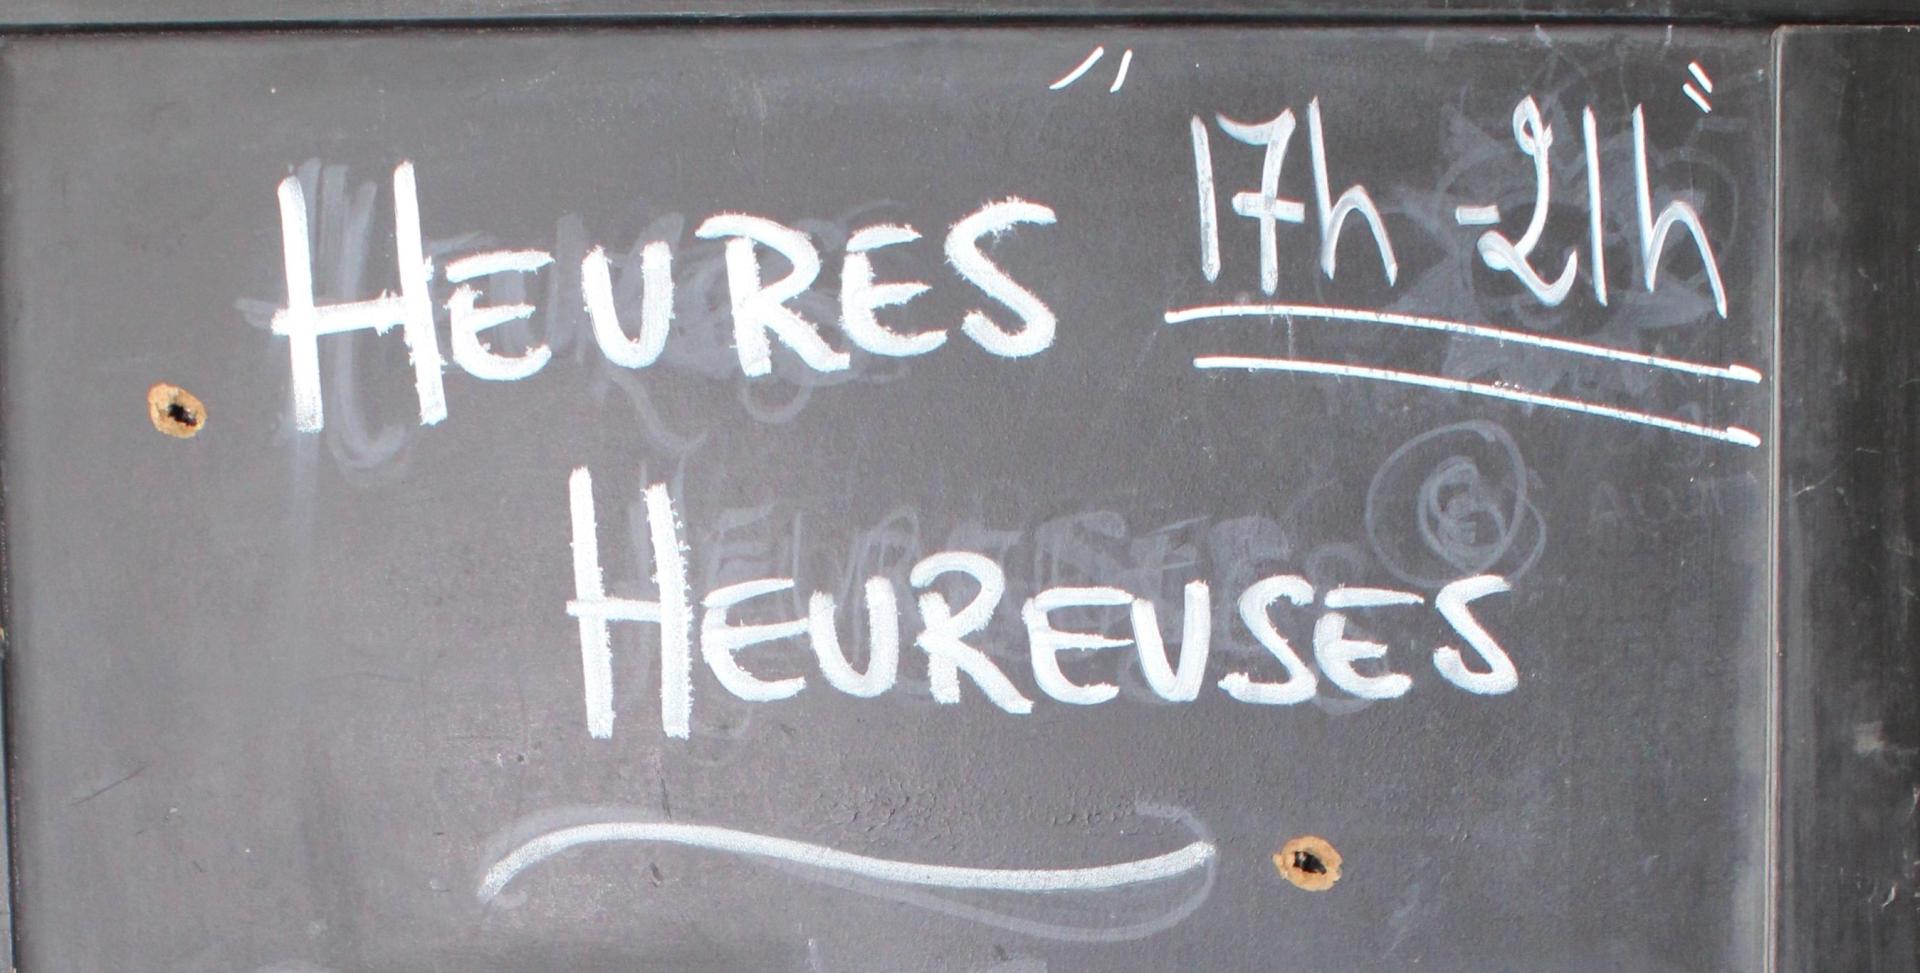 HEURES "17h-21h"
HEUREUSES